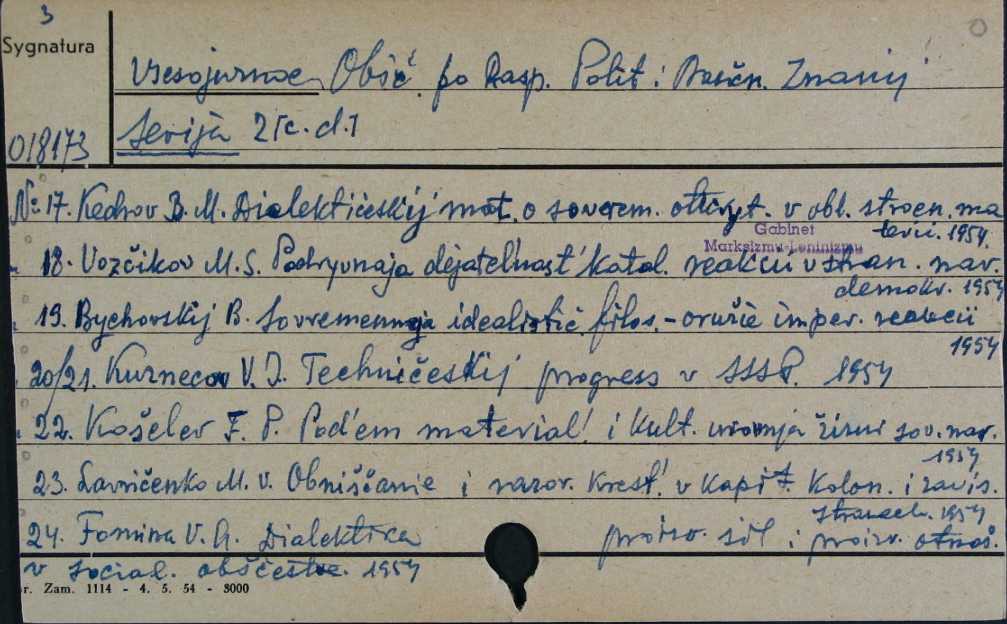 3
Sygnatura
Vsesojuznoe Obšč. po Rasp. Polit. i Naučn. Znanij
serija 2 [c. d.]
O/8173
№ 17. Kedrov B. M. Dialektičeskij mat. o soverem. otkryt. v obl. stroen. ma
terii. 1954.
Gabinet
Marksizmu-Leninizmu
18. Vozčikov M. S. Podryvnaja dejatelnost' katol. reakcii v stran. nar.
demokr. 1954
19. Bychovskij B. Sovremennaja idealistič. filos. - oružie imper. reakcii
1954
20/21. Kuznecov V. I. Techničeskij progress v SSSR. 1954
22. Košelev F. P. Pod'em material' i kult. urovnja žizni sov. nar.
1954
23. Lavričenko M. V. Obniščanie i razor. krest'. v kapit. kolon. i zavis.
stranach. 1954
24. Fomina V. A. Dialektika proizv. sil i proizv. otnoš.
v social. obščestve. 1954
r. Zam. 1114 - 4. 5. 54 - 3000